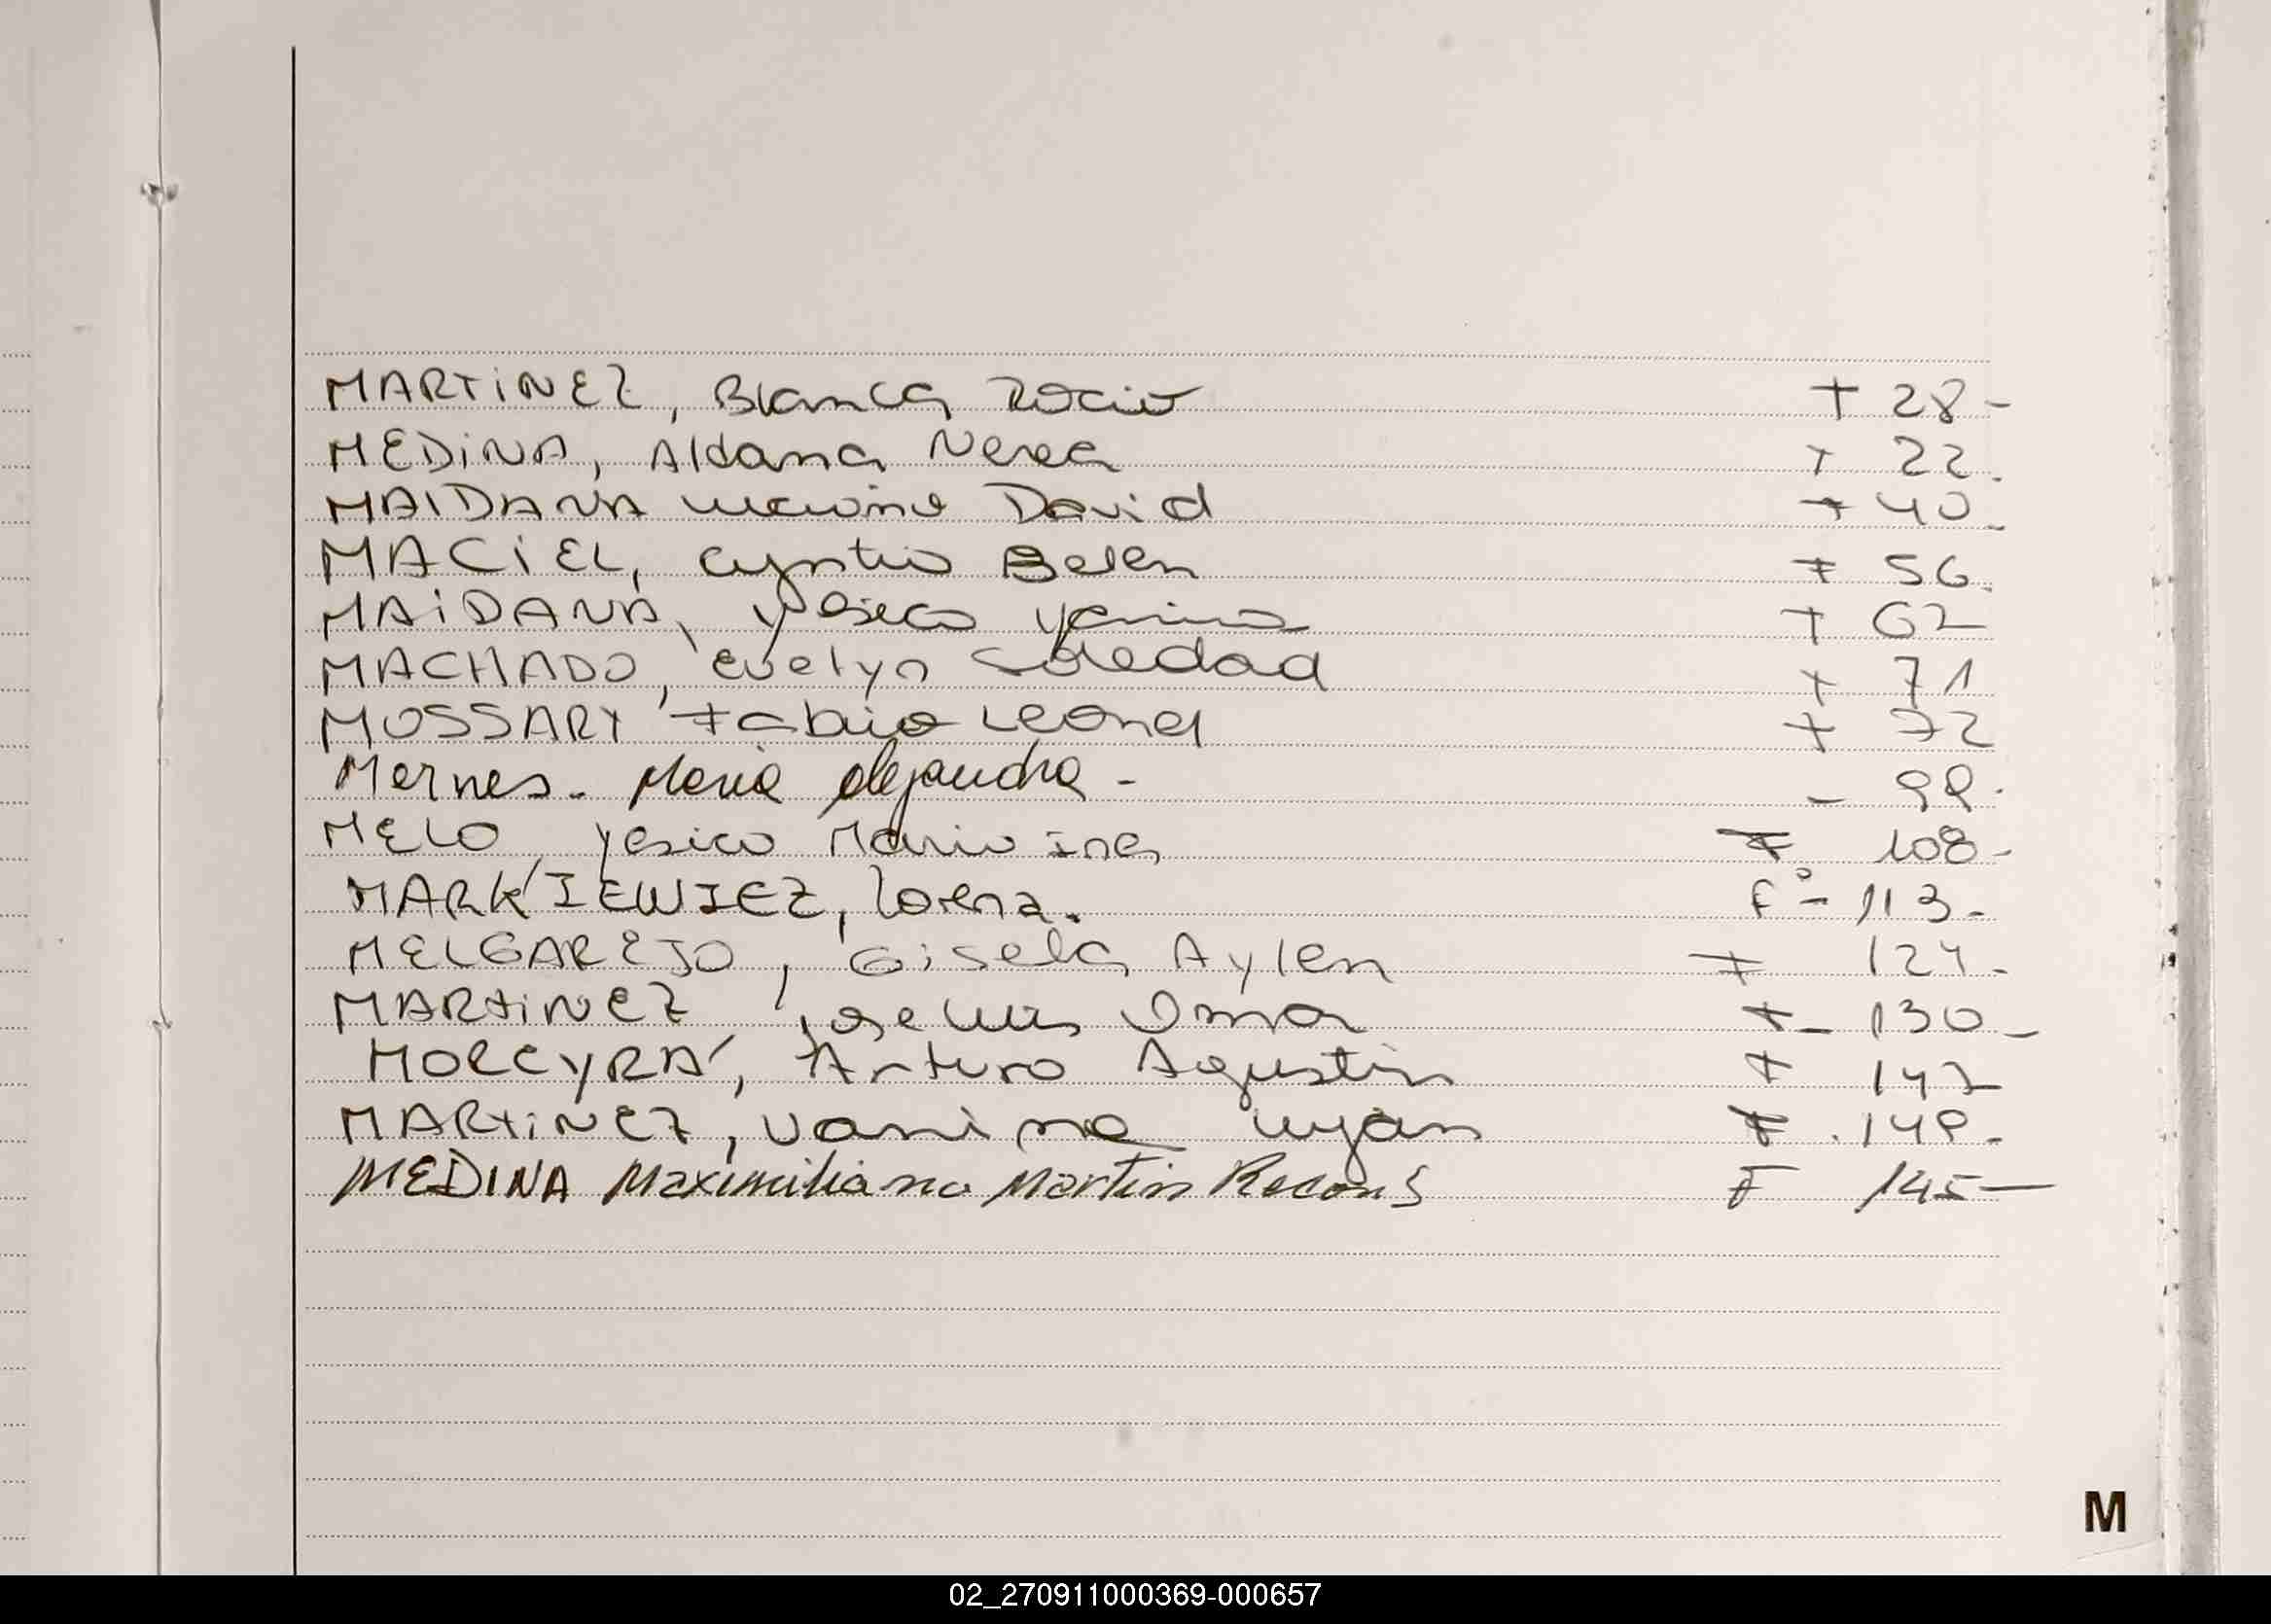 MARTiNEZ, Blanca Rocio F 28-
MEDiNA, Aldana Nerea F 22.
MAIDANA Luciano David F 40-
MACiEL, Cyntia Belen F 56.
MAiDANA, Yesica Yanina F 62
MACHADO, Evelyn Soledad F 71
MOSSARY Fabio Leonel F 72
Mernes. Maria Alejandra - - 99.
MELO, Yesica Mario Ines F 108-
MARKIEWIEZ, Lorena. Fº- 113-
MELGAREJO, Gisela Aylen F 124-
MARTiNEZ, Jose Luis Omar F- 130-
MOREYRA, Arturo Agustin F 147
MARTiNEZ, Vanina Lujan F. 149-
MEDINA Maximiliano Martin F 145-
M
02_270911000369-000657